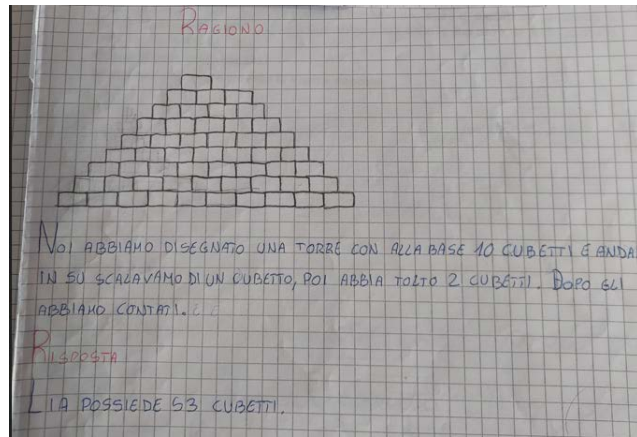 RAGIONO
NOI ABBIAMO DISEGNATO UNA TORRE CON ALLA BASE 10 CUBETTI E ANDA
IN SU SCALAVAMO DI UN CUBETTO, POI ABBIA TOLTO 2 CUBETTI. DOPO GLI
ABBIAMO CONTATI.
RISPOSTA
LIA POSSIEDE 53 CUBETTI.